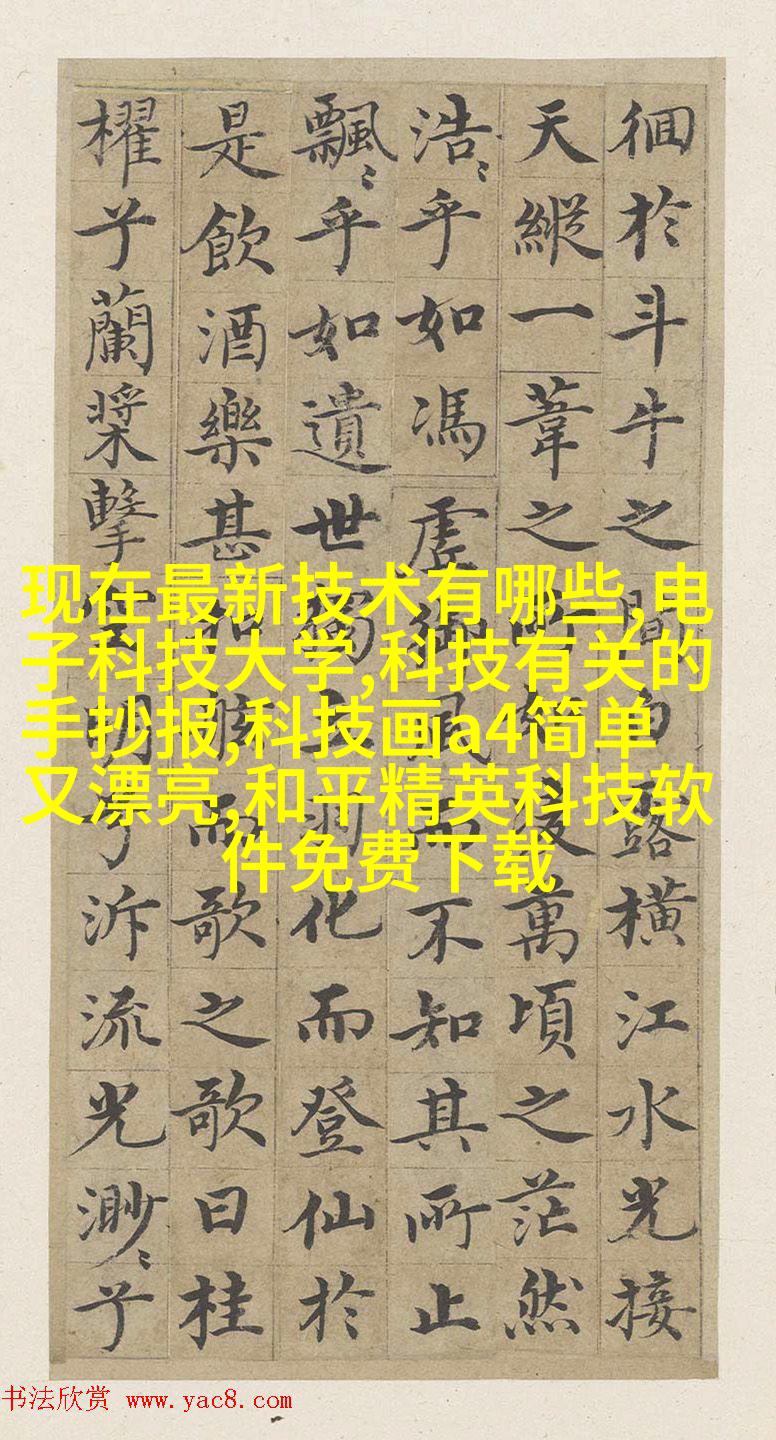 徊於斗牛之間白露橫江水光接
天縱一葦之所如凌萬頃之茫然
浩〻乎如馮虛御風而不知其所止
飄〻乎如遺世獨立羽化而登仙於
是飲酒樂甚扣舷而歌之歌曰桂
櫂兮蘭槳擊空明兮泝流光渺〻兮
现在最新技术有哪些,电
子科技大学,科技有关的
手抄报,科技画a4简单
又漂亮,和平精英科技软
件免费下载
书法欣赏 www.yac8.com